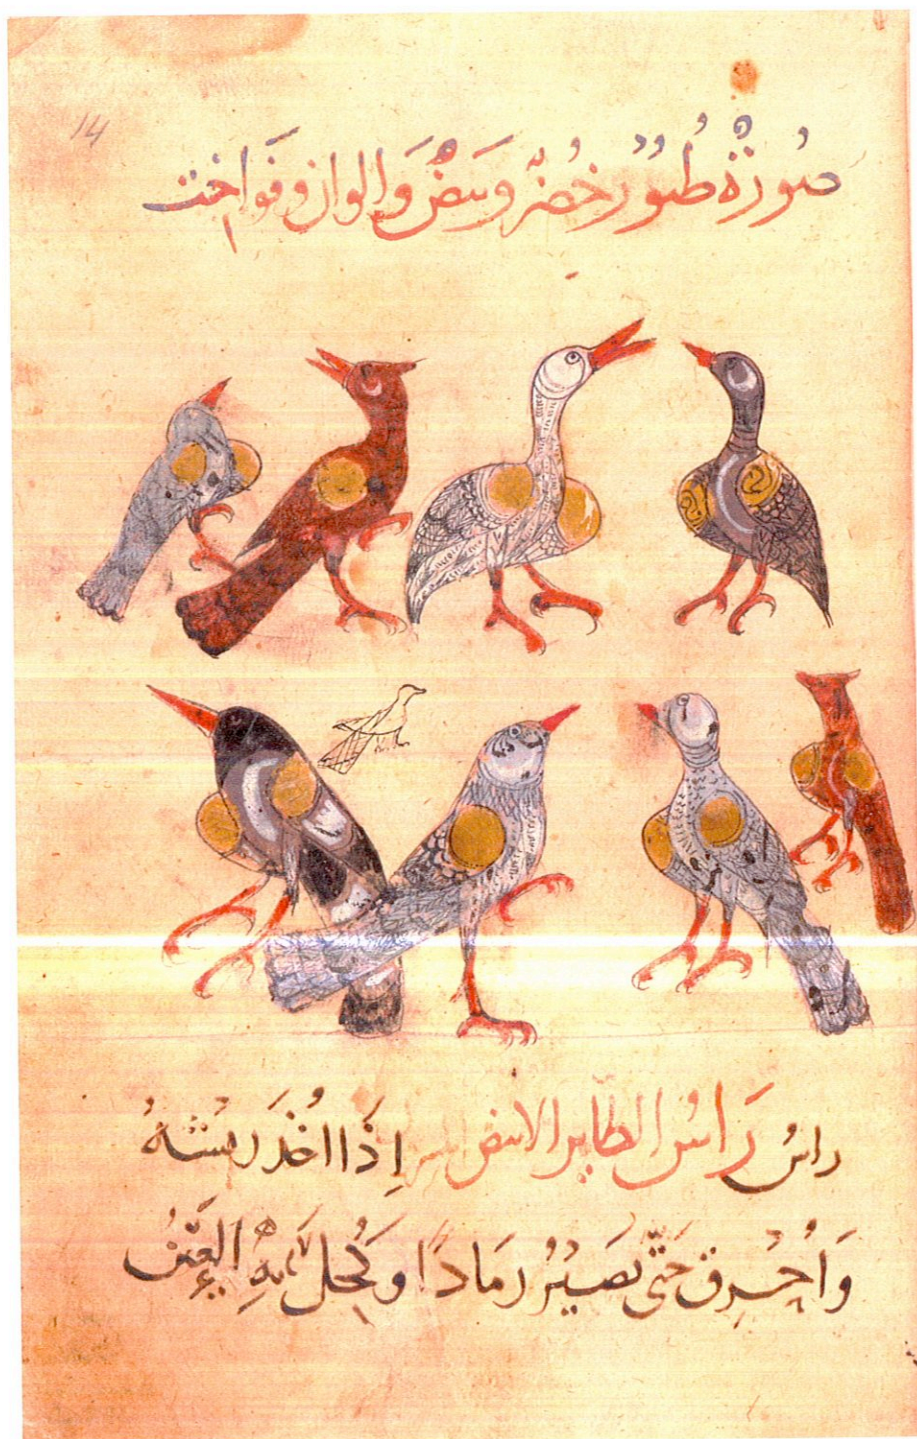 14
صُورَةُ طُيُورٍ خُضْرٍ وَبيضٍ وَالوان وفَوَاخِت
راسُ رَاسُ الطاير الابيض اِذَا اُخِذَ رِيشَتُهُ
وَاُحْرِقَ حَتّى يَصيْرُ رَمَادًا وَكُحِلَ بِهِ العَيْنُ